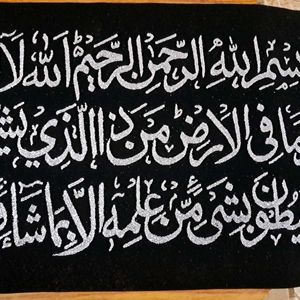 بسم الله الرحمن الرحيم الله لا
ما فى الارض من ذا الذي يش
يطون بشئ من علمه الا بما شاء و